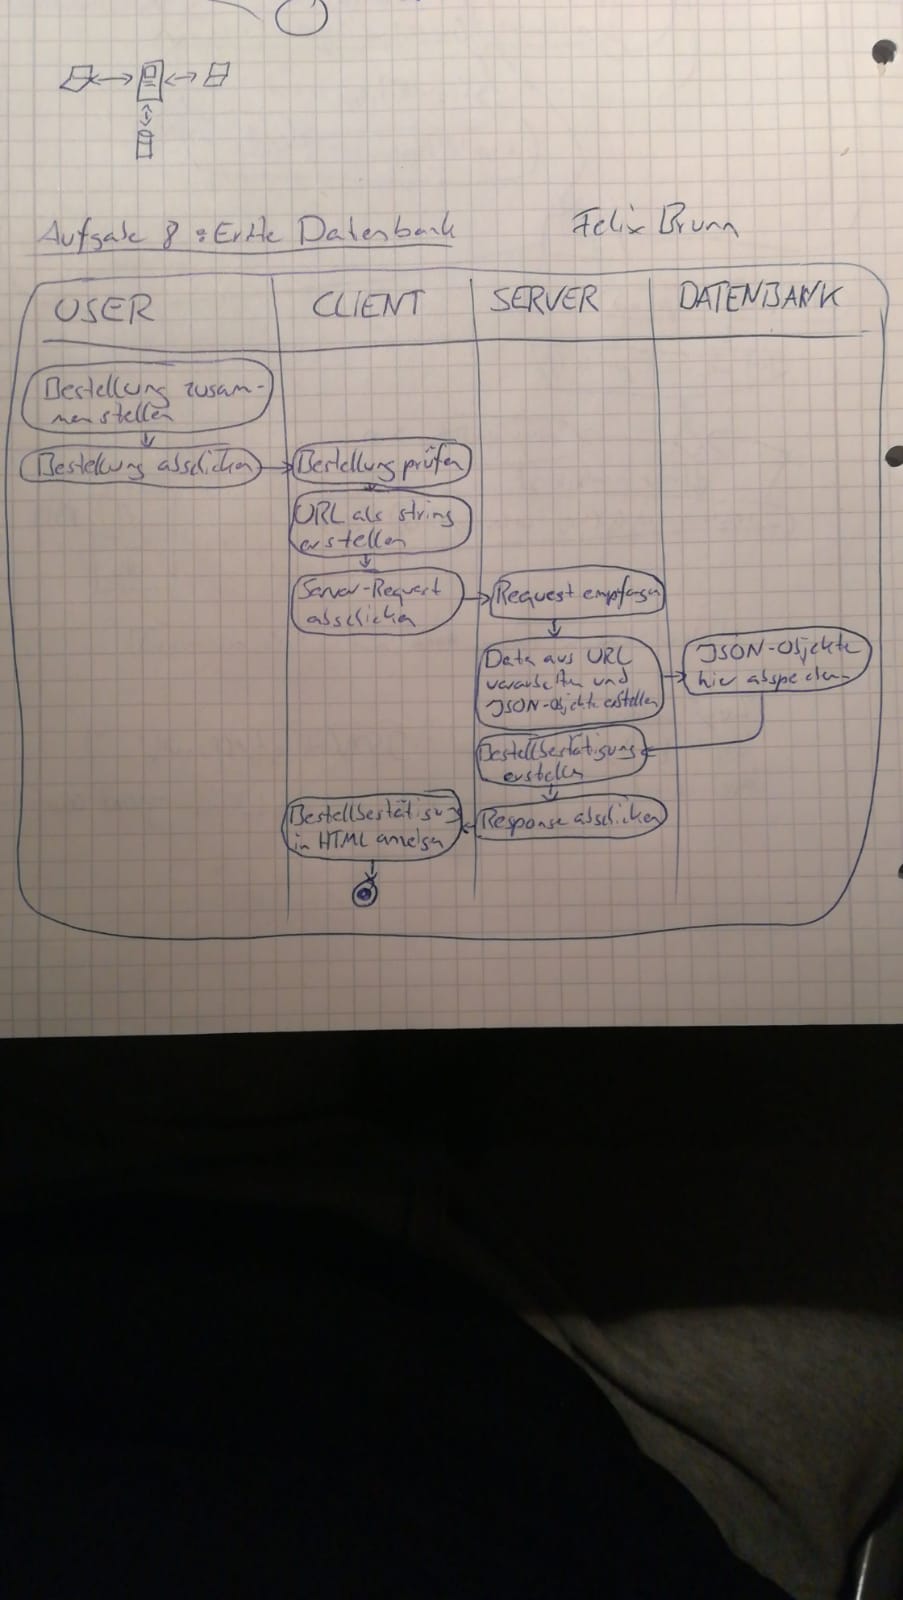 Aufgabe 8: Erste Datenbank
Felix Brunn
USER
CLIENT
SERVER
DATENBANK
Bestellung zusam-
menstellen
Bestellung abschicken
Bestellung prüfen
URL als string
erstellen
Server-Request
abschicken
Request empfangen
Data aus URL
verarbeiten und
JSON-Objekte erstellen
JSON-Objekte
hier abspeichern
Bestellbestätigung
erstellen
Response abschicken
Bestellbestätigung
in HTML anzeigen